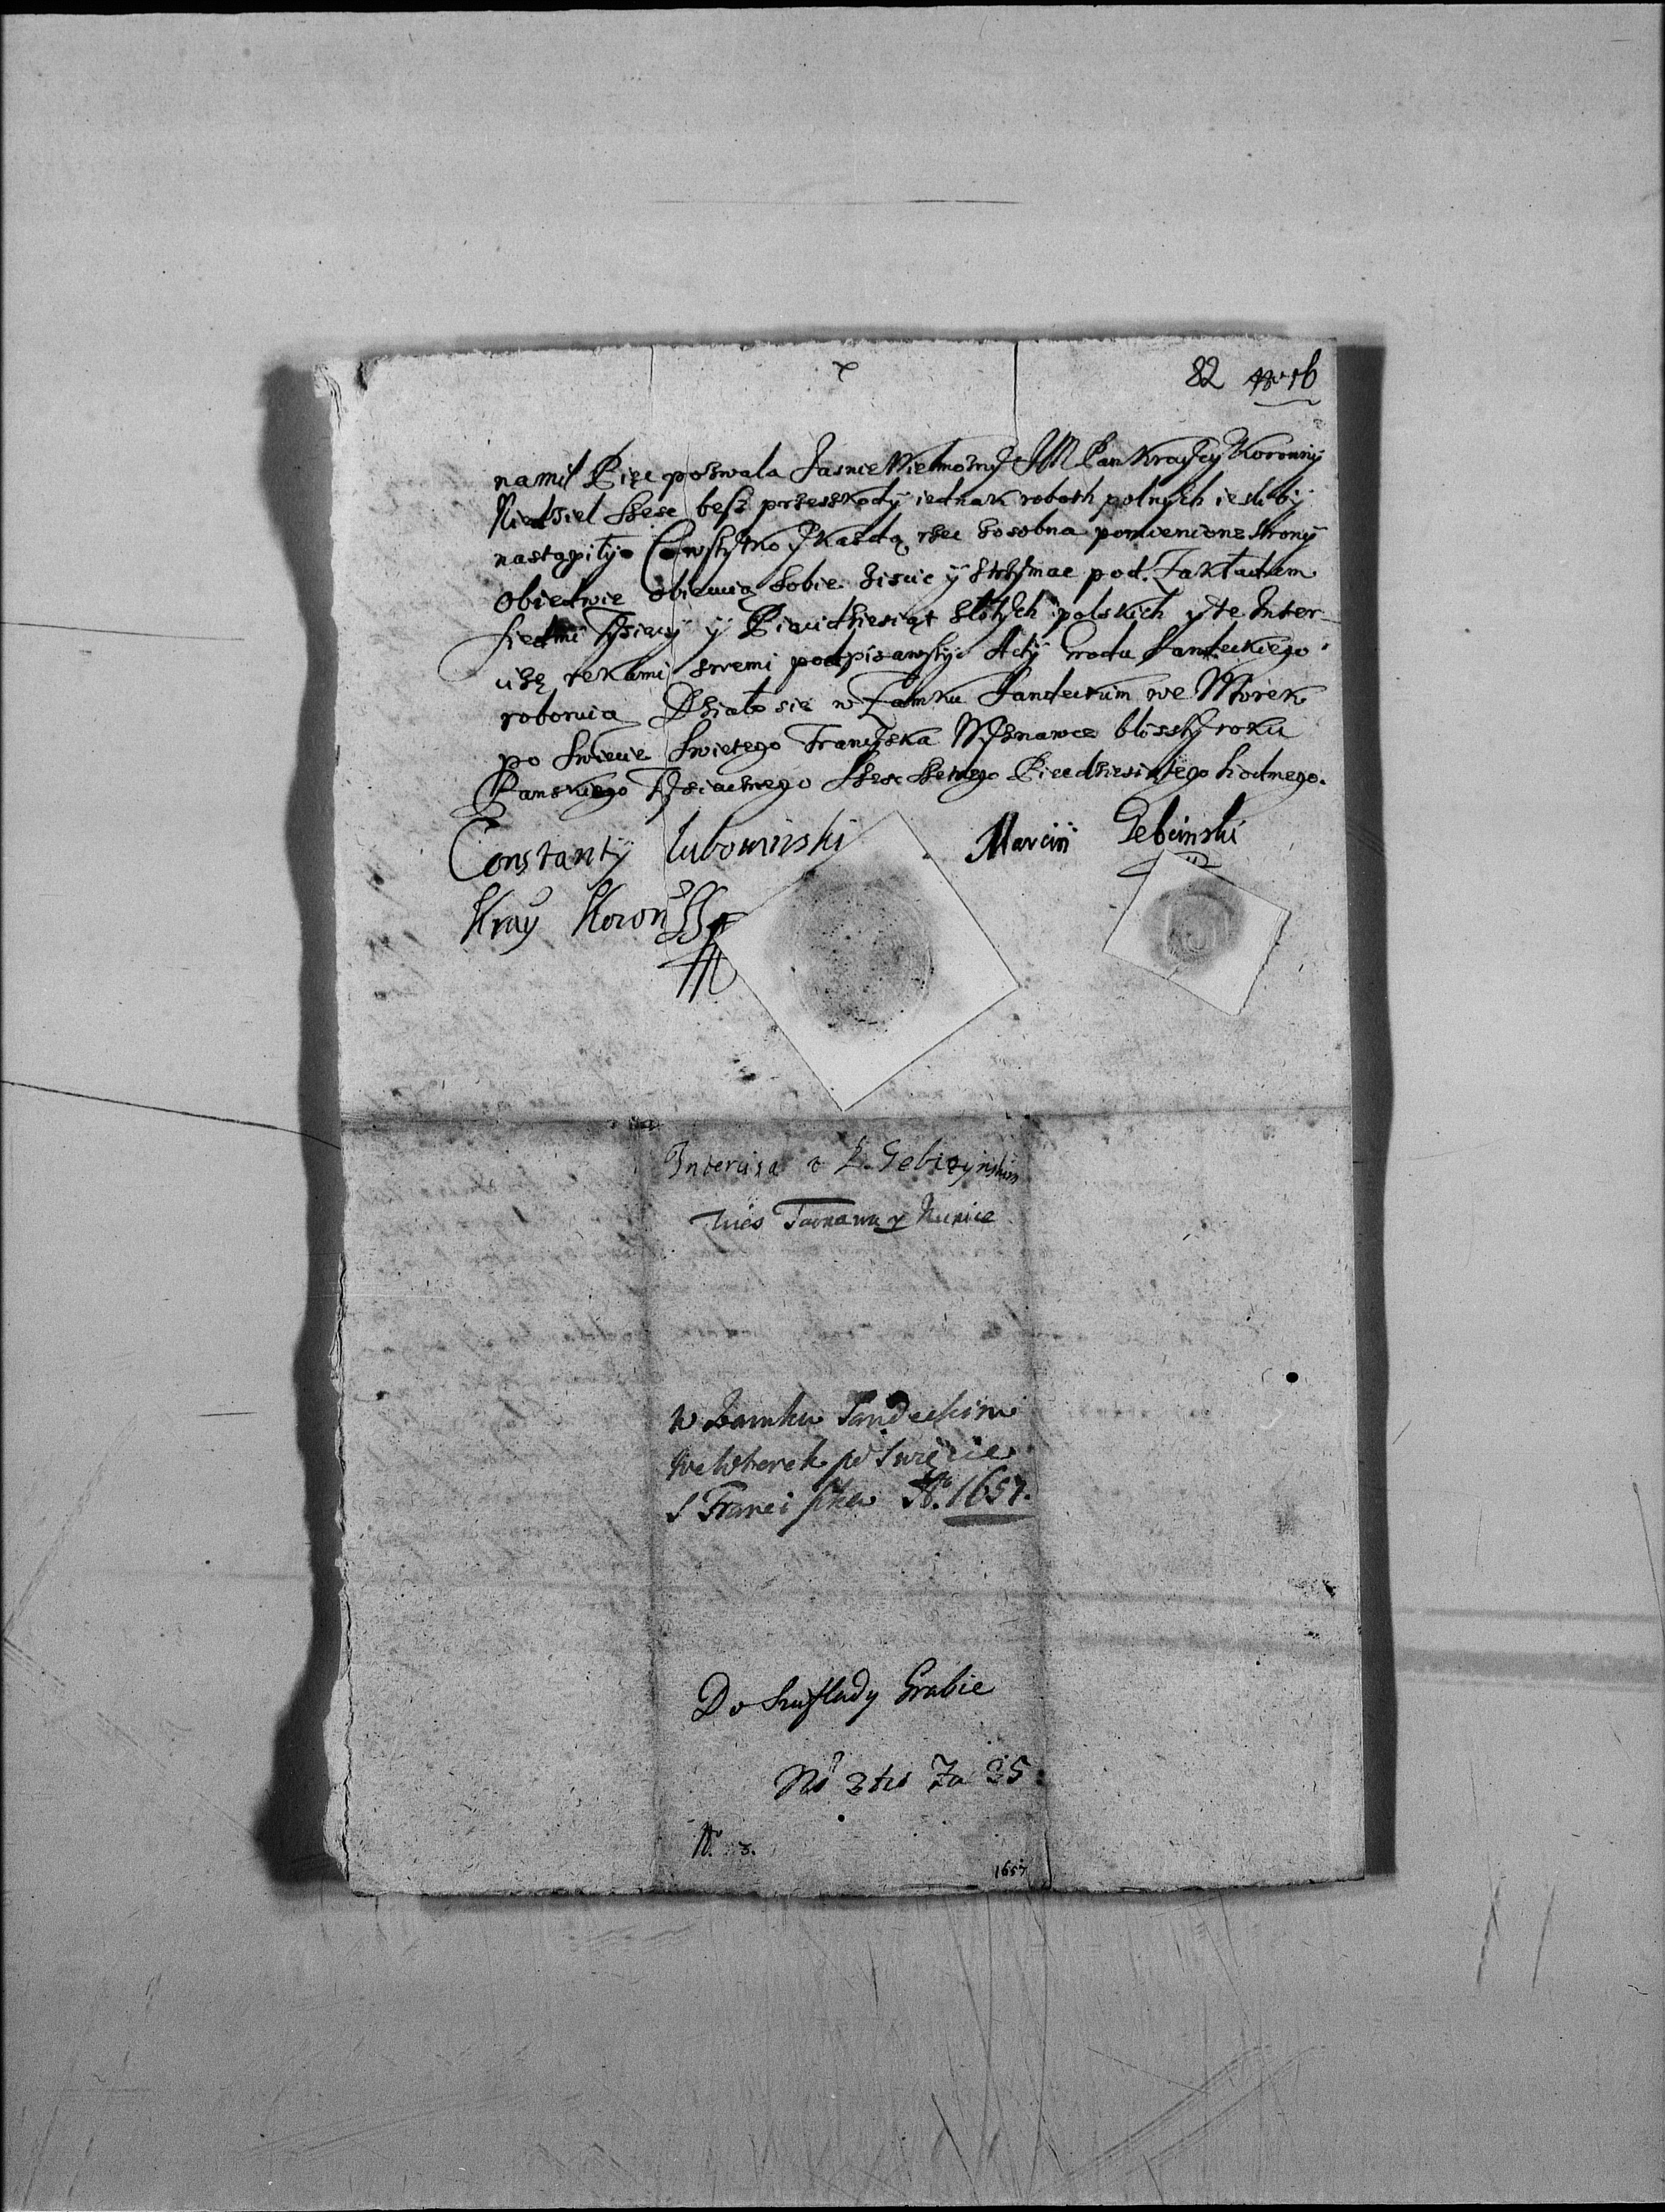 82
namil Pięc pozwala Jasnie Wielmozny JM Pan Krayczy Koronny
Niedziel szesc besz przesskody iednak roboth polnych iesliby
nastąpiły. Co wszytko y kazdą rzec zosobna pomienione strony
obiedwie obiecuią sobie ziscic y ztrzymac pod Zakładem
siedmi Tysięcy y Pięcidziesiąt złotych polskich y te Inter-
cisę rękami swemi podpisawszy Acty Grodu Sandeckiego
roboruią Działo się w Zamku Sandeckim we Wtorek
po Swięcie Swietego Franciszka Wyznawce blisszy roku
Panskiego Tysiącnego Szescsetnego Piecdziesiątego siodmego.
Constanty Lubomirski
Marcin Gebcinski
Kray Koron
Intercisa z P. Gebiczynskim
Wies Tarnawa y Kunice
w Zamku Sandeckim
we Wterek po Swięcie
S Franciszka Ao. 1657.
Do Szuflady Grabie
No 3tio Za 35.
No. 3.
1657